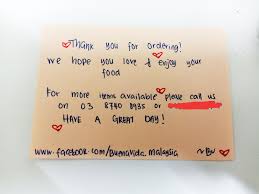 Thank you for ordering!
We hope you love & enjoy your
food
For more items available please call us
on 03 8740 8935 or
HAVE A GREAT DAY!
www.facebook.com/Buenavida Malaysia